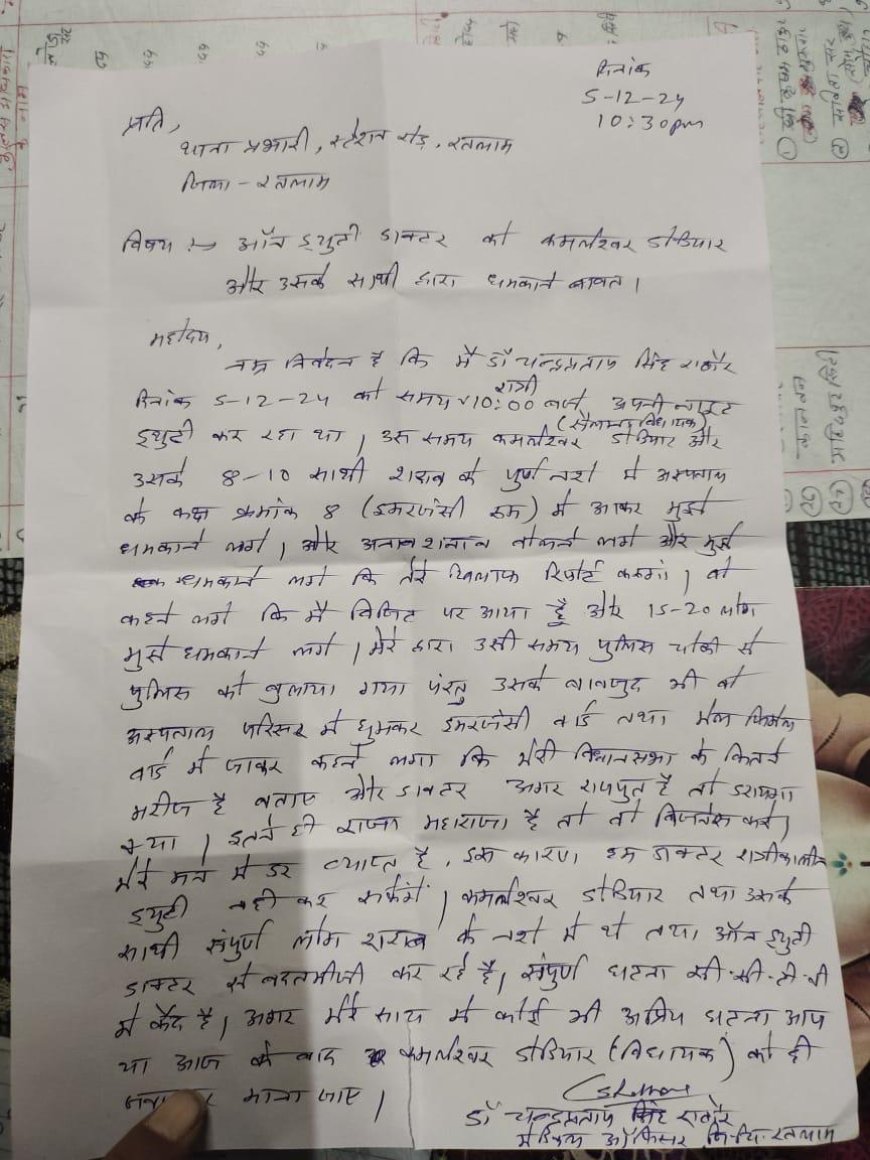 दिनांक
5-12-24
10:30pm
प्रति,
थाना प्रभारी, स्टेशन रोड, रतलाम
जिला - रतलाम
विषय :→ ऑन ड्युटी डाक्टर को कमलेश्वर डोडियार
और उसके साथी द्वारा धमकाने बाबत।
महोदय,
नम्र निवेदन है कि मैं डॉ चन्द्रप्रताप सिंह राठौर
दिनांक 5-12-24 को समय रात्री 10:00 बजे अपनी नाइट
ड्युटी कर रहा था। उस समय कमलेश्वर डोडियार (सैलाना विधायक) और
उसके 8-10 साथी शराब के पुर्ण नशे मे अस्पताल
के कक्ष क्रमांक 8 (इमरजेंसी रूम) मे आकर मुझे
धमकाने लगे। और अनाब शनाब बोलने लगे और मुझे
धमकाने लगे कि तेरे खिलाफ रिपोर्ट करूगां। वो
कहने लगे कि मै विजिट पर आया हूँ और 15-20 लोग
मुझे धमकाने लगे। मेरे द्वारा उसी समय पुलिस चोकी से
पुलिस को बुलाया गया परंतु उसके बावजुद भी वो
अस्पताल परिसर मे घुमकर इमरजेंसी वार्ड तथा मेल फिमेल
वार्ड मे जाकर कहने लगा कि मेरी विधानसभा के कितने
मरीज है बताए और डाक्टर अगर राजपुत है तो डरायगा
क्या। इतने ही राजा महाराजा है तो तो बिजनेस करे।
मेरे मन मे डर व्याप्त है, इस कारण हम डाक्टर रात्रीकालीन
ड्युटी नही कर सकेगें। कमलेश्वर डोडियार तथा उसके
साथी संपुर्ण लोग शराब के नशे मे थे तथा ऑन ड्युटी
डाक्टर से बदतमीजी कर रहे है। संपुर्ण घटना सी.सी.टी.वी
मे कैद है। अगर मेरे साथ मे कोई भी अप्रिय घटना आज
या आज के बाद कमलेश्वर डोडियार (विधायक) को ही
माना जाए।
डॉ चन्द्रप्रताप सिंह राठौर
मेडिकल ऑफिसर जि.चि. रतलाम